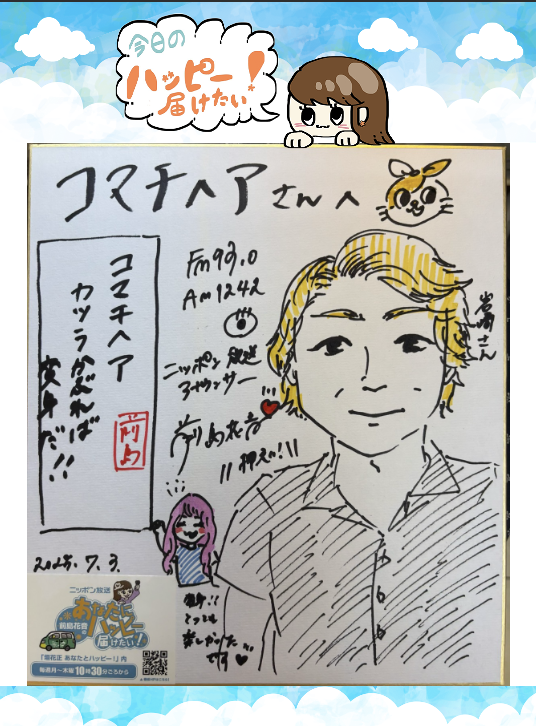 今日の
ハッピー!
届けたい!
コマチヘアさんへ
コマチヘア
カツラかぶれば
変身だ!!
前島
Fm93.0
Am1242
ニッポン放送
アナウンサー
前島花音
押えい!
岩崎さん
2025.7.3.
変身!!
とっても
楽しかった
です
ニッポン放送
前島花音
あなたに
ハッピー
届けたい!
「春花正 あなたとハッピー!」内
毎週月~木曜10時30分ごろから